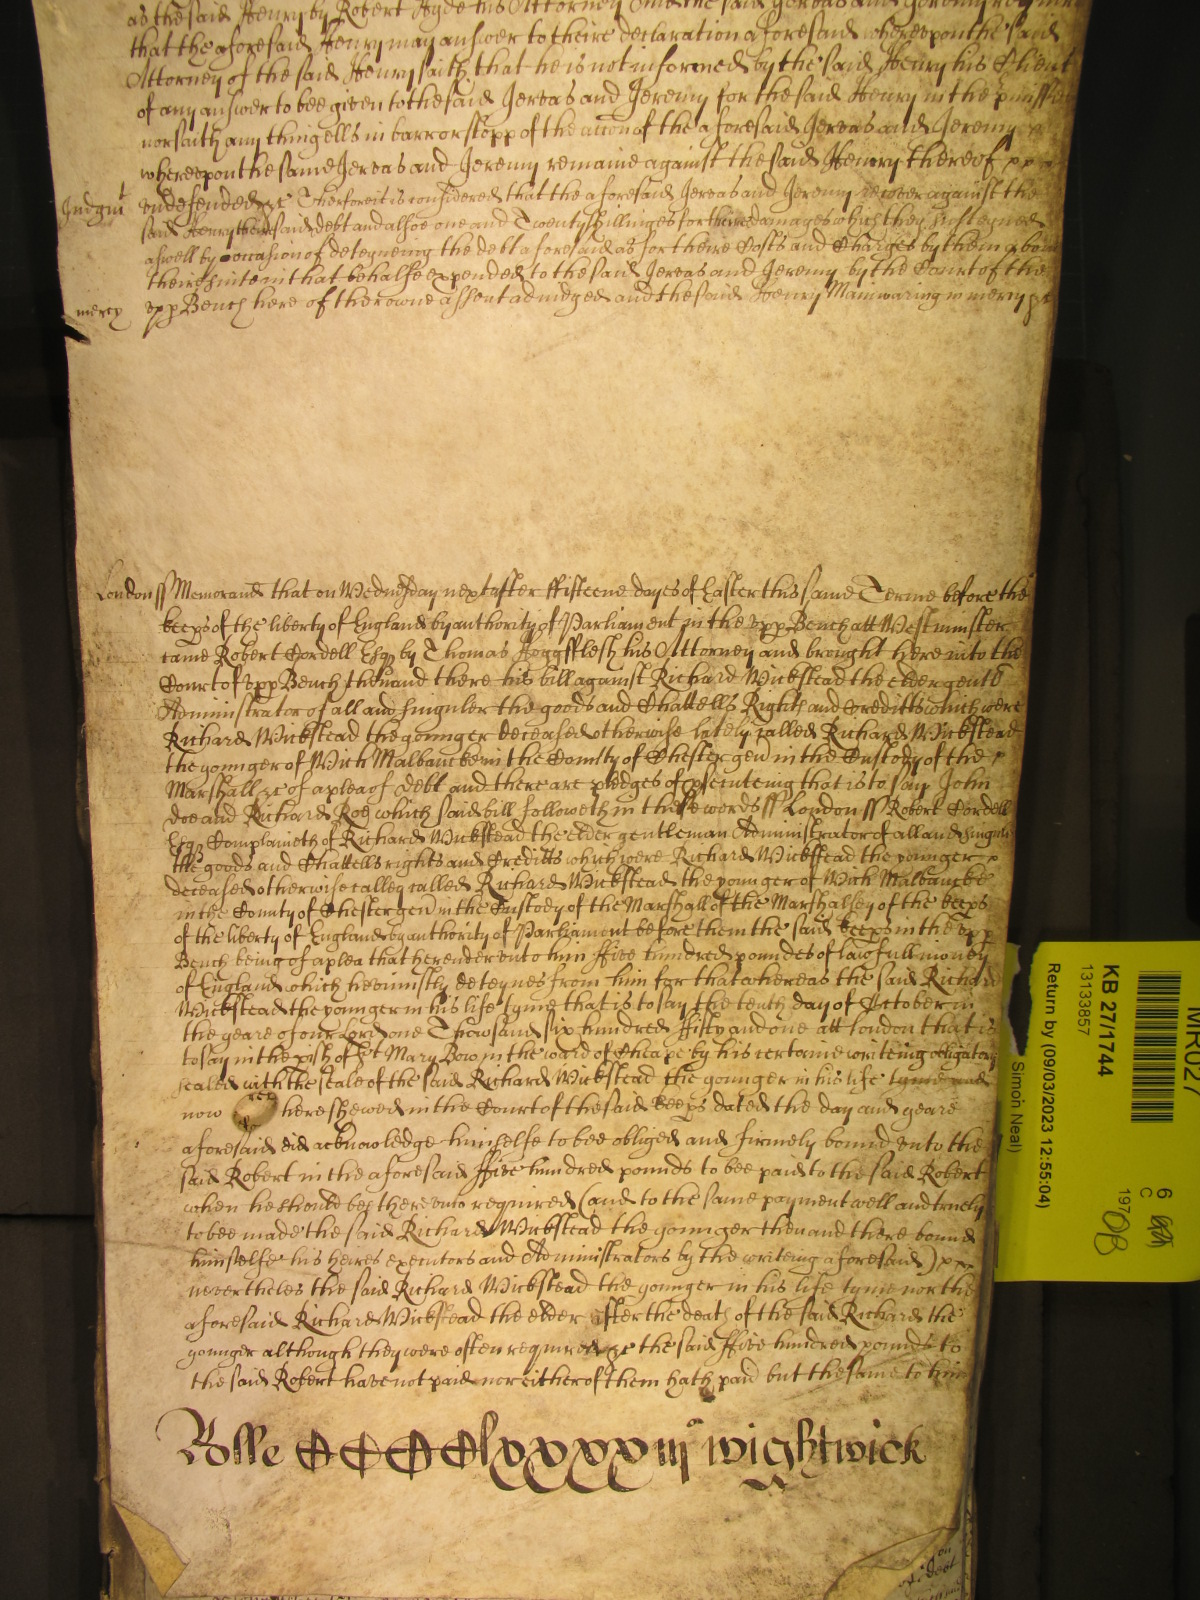 as the said Henry by Robert Hyde his Attorney And the said Jereas and Jeremy require
that the aforesaid Henry may answer to theire declaration aforesaid whereupon the said
Attorney of the said Henry saith that he is not informed by the said Henry his Client
of any answer to bee given to the said Jereas and Jeremy for the said Henry in the
nor saith any thing ells in barr or stopp of the accon of the aforesaid Jereas and Jeremy
whereupon the same Jereas and Jeremy remaine against the said Henry thereof
Judgmt undefended &c Therefore it is considered that the aforesaid Jereas and Jeremy recover against the
said Henry their said debt and alsoe one and Twenty shillinges for their damages which they susteyned
aswell by occasion of deteyneing the debt aforesaid as for theire Costs and Charges by them about
their suite in that behalfe expended to the said Jereas and Jeremy by the Court of the
mercy upp Bench here of their owne assent adiudged and the said Henry Mainwaring in mercy &c
London ss Memorand that on Wednesday next after ffifteene dayes of Easter this same Terme before the
keeps of the liberty of England by authority of Parliament in the upp Bench att Westminster
came Robert Cordell Esqr by Thomas Hoggfflesh his Attorney and brought here into the
Court of upp Bench then and there his bill against Richard Wickstead the elder gentl
Administrator of all and singuler the goods and Chattells Rights and Creditts which were
Richard Wickstead the younger deceased otherwise lately called Richard Wickstead
the younger of Wich Malbancke in the County of Chester gen in the Custody of the
Marshall &c of a plea of debt and there are pledges of psecuteing that is to say John
doe and Richard Roe which said bill followeth in these words ss London ss Robert Cordell
Esqr Complaineth of Richard Wickstead the elder gentleman Administrator of all and singuler
the goods and Chattells rights and Creditts which were Richard Wickstead the younger
deceased otherwise called called Richard Wickstead the younger of Wich Malbancke
in the County of Chester gen in the Custody of the Marshall of the Marshalsey of the keeps
of the liberty of England by authority of Parliament before them the said keeps in the upp
Bench being of a plea that he render unto him ffive hundred poundes of lawfull money
of England which he uniustly deteynes from him for that whereas the said Richard
Wickstead the younger in his life tyme that is to say the tenth day of October in
the yeare of our Lord one Thowsand six hundred ffifty and one att London that is
to say in the pish of St Mary Bow in the ward of Cheape by his certaine writeing obligatory
sealed with the seale of the said Richard Wickstead the younger in his life tyme and
now here shewed in the Court of the said keeps dated the day and yeare
aforesaid did acknowledge himselfe to bee obliged and firmely bound unto the
said Robert in the aforesaid ffive hundred pounds to bee paid to the said Robert
when he should bee thereunto required (and to the same payment well and truely
to bee made the said Richard Wickstead the younger then and there bound
himselfe his heires executors and Administrators by the writeing aforesaid)
nevertheles the said Richard Wickstead the younger in his life tyme nor the
aforesaid Richard Wickstead the elder after the death of the said Richard the
younger although they were often required &c the said ffive hundred pounds to
the said Robert have not paid nor either of them hath paid but the same to him
Rolle CCCClxxxxiiijo wightwick
MR027
KB 27/1744
13133857
Return by (09/03/2023 12:55:04)
Simon Neal
6
C
197